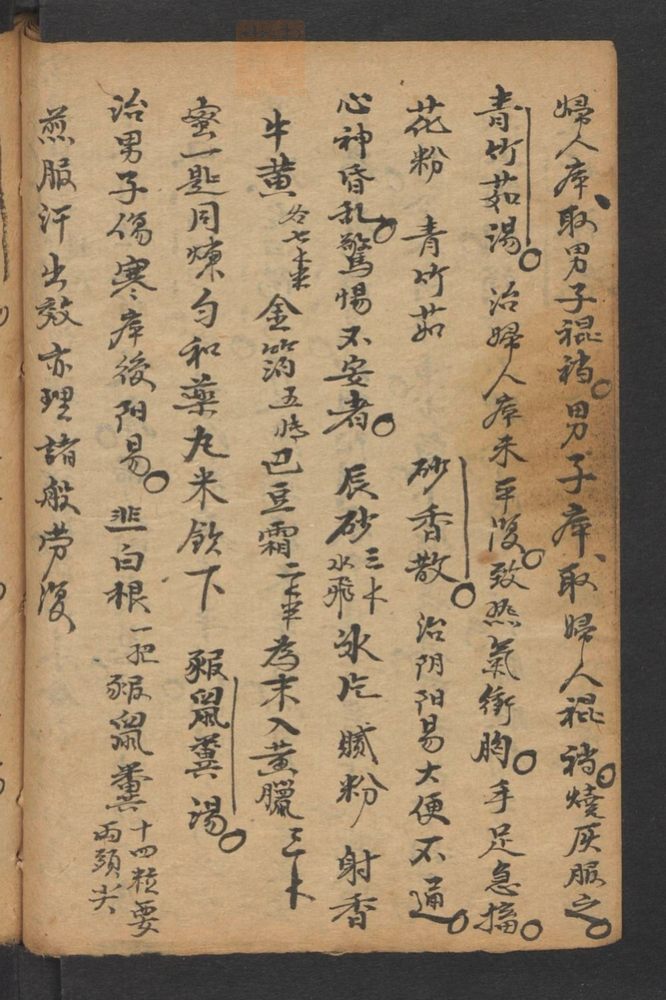 婦人病取男子裩襠男子病取婦人裩襠燒灰服之
青竹茹湯治婦人病未平復致熱氣衝胸手足急搐
花粉 青竹茹 砂香散治阴阳易大便不通
心神昏乱驚惕不安者辰砂三卜水飛氷片 膩粉 射香
牛黄各七 金箔五 巴豆霜二 為末入黄臘三卜
蜜一匙同煉勻和藥丸米飲下 豭鼠糞湯
治男子傷寒病後阳易 韮白根一把豭鼠糞十四粒要两頭尖
煎服汗出效亦理諸般劳復